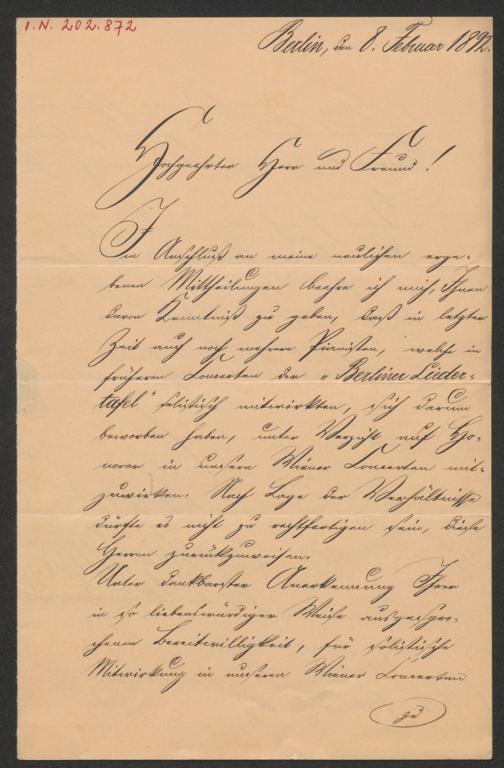 I.N. 202.872
Berlin, den 8. Februar 1892.
Hochgeehrter Herr und Freund!
Im Anschluß an meine neulichen erge-
benen Mittheilungen beehre ich mich, Ihnen
davon Kenntniß zu geben, daß in letzter
Zeit auch noch mehrere Pianisten, welche in
früheren Concerten der „Berliner Lieder-
tafel" solistisch mitwirkten, sich darum
beworben haben, unter Verzicht auf Ho-
norar in unsern Wiener Concerten mit-
zuwirken. Nach Lage der Verhältnisse
dürfte es nicht zu rechtfertigen sein, diese
Herren zurückzuweisen.
Unter dankbarster Anerkennung Ihrer
in so liebenswürdiger Weise ausgespro-
chenen Bereitwilligkeit, für solistische
Mitwirkung in unseren Wiener Concerten
zu